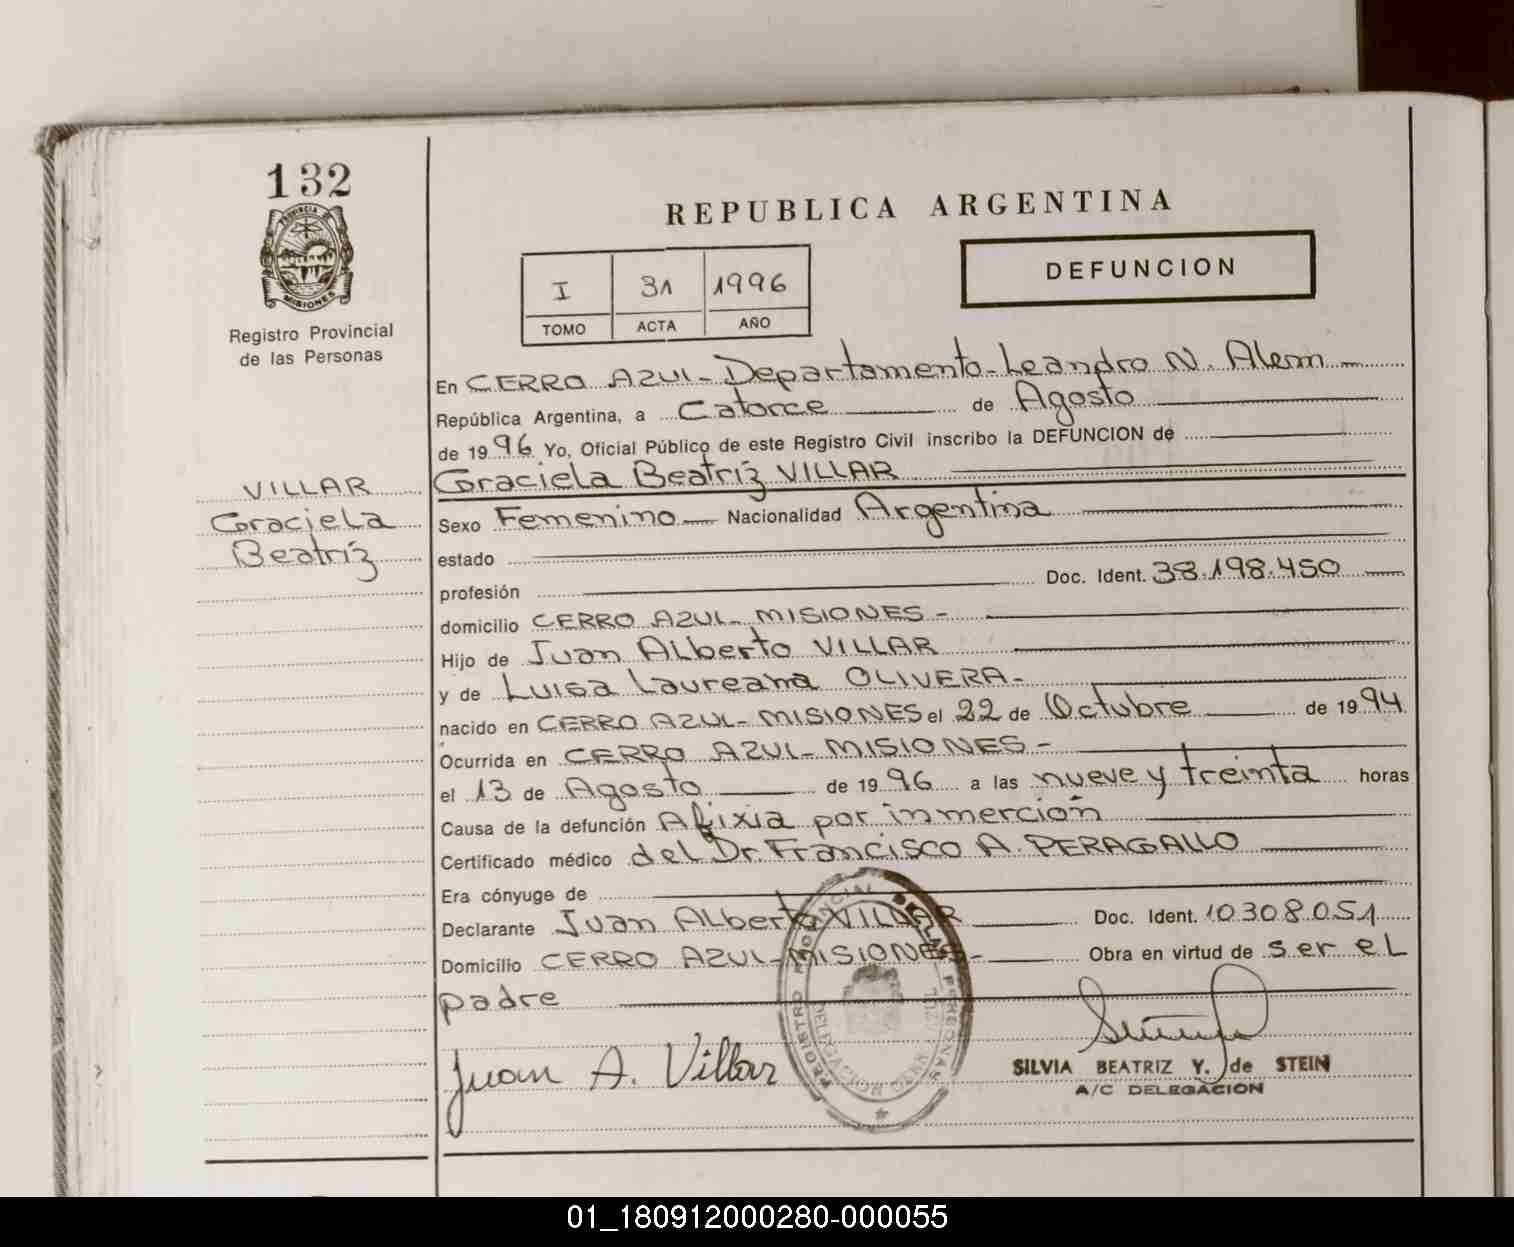 132
PROVINCIA DE
MISIONES
Registro Provincial
de las Personas
REPUBLICA ARGENTINA
I 31 1996
TOMO ACTA AÑO
DEFUNCION
En CERRO AZUL - Departamento - Leandro N. Alem -
República Argentina, a Catorce de Agosto
de 1996 Yo, Oficial Público de este Registro Civil inscribo la DEFUNCION de
VILLAR
Graciela
Beatriz
Graciela Beatriz VILLAR
Sexo Femenino Nacionalidad Argentina
estado
profesión Doc. Ident. 38.198.450
domicilio CERRO AZUL - MISIONES -
Hijo de Juan Alberto VILLAR
y de Luisa Laureana OLIVERA -
nacido en CERRO AZUL - MISIONES el 22 de Octubre de 1994
Ocurrida en CERRO AZUL - MISIONES -
el 13 de Agosto de 1996 a las nueve y treinta horas
Causa de la defunción Afixia por inmerción
Certificado médico del Dr. Francisco A. PERAGALLO
Era cónyuge de
Declarante Juan Alberto VILLAR Doc. Ident. 10308051
Domicilio CERRO AZUL - MISIONES - Obra en virtud de ser el
padre
Juan A. Villar
REGISTRO PROVINCIAL DE LAS PERSONAS
SILVIA BEATRIZ Y. de STEIN
A/C DELEGACION
01_180912000280-000055